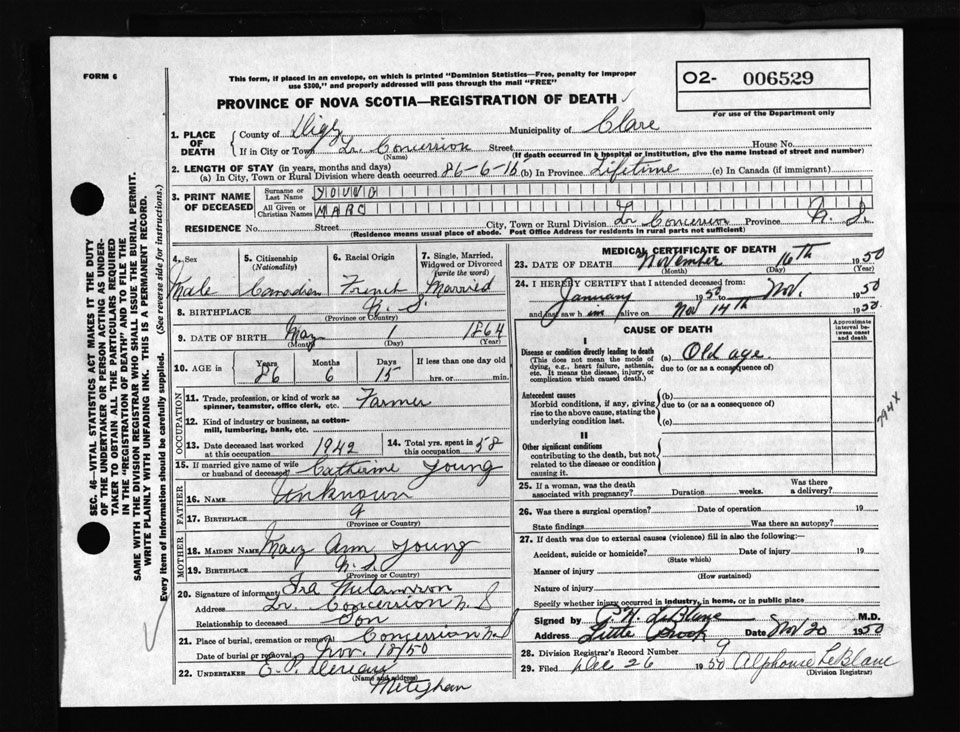 FORM 6
This form, if placed in an envelope, on which is printed "Dominion Statistics—Free, penalty for improper
use $300," and properly addressed will pass through the mail "FREE"
O2- 006529
For use of the Department only
PROVINCE OF NOVA SCOTIA—REGISTRATION OF DEATH
1. PLACE OF DEATH County of Digby Municipality of Clare
If in City or Town Lr. Concession Street House No.
(Name) (If death occurred in a hospital or institution, give the name instead of street and number)
2. LENGTH OF STAY (in years, months and days)
(a) In City, Town or Rural Division where death occurred 86-6-15 (b) In Province Lifetime (c) In Canada (if immigrant)
3. PRINT NAME OF DECEASED Surname or Last Name YOUNG
All Given or Christian Names MARC
RESIDENCE No. Street City, Town or Rural Division Lr Concession Province N. S.
(Residence means usual place of abode. Post Office Address for residents in rural parts not sufficient)
4. Sex Male
5. Citizenship (Nationality) Canadian
6. Racial Origin French
7. Single, Married, Widowed or Divorced (write the word) Married
8. BIRTHPLACE N. S.
(Province or Country)
9. DATE OF BIRTH May 1 1864
(Month) (Day) (Year)
10. AGE in Years Months Days If less than one day old
86 6 15 hrs. or min.
OCCUPATION
11. Trade, profession, or kind of work as spinner, teamster, office clerk, etc. Farmer
12. Kind of industry or business, as cotton-mill, lumbering, bank, etc.
13. Date deceased last worked at this occupation 1942
14. Total yrs. spent in this occupation 58
15. If married give name of wife or husband of deceased Catherine Young
FATHER
16. NAME Unknown
17. BIRTHPLACE
(Province or Country)
MOTHER
18. MAIDEN NAME Mary Ann Young
19. BIRTHPLACE N. S.
(Province or Country)
20. Signature of informant Ira
Address Lr. Concession N. S
Relationship to deceased Son
21. Place of burial, cremation or removal Concession N.S
Date of burial or removal Nov. 18/50
22. UNDERTAKER E. P.
(Name and address)
Meteghan
MEDICAL CERTIFICATE OF DEATH
23. DATE OF DEATH November 16th 1950
(Month) (Day) (Year)
24. I HEREBY CERTIFY that I attended deceased from:
January 1950 to Nov. 1950
and last saw him alive on Nov 14th 1950
CAUSE OF DEATH
Approximate interval between onset and death
I
Disease or condition directly leading to death (a) Old age.
(This does not mean the mode of dying, e.g., heart failure, asthenia, etc. It means the disease, injury, or complication which caused death.)
due to (or as a consequence of)
Antecedent causes (b)
Morbid conditions, if any, giving rise to the above cause, stating the underlying condition last.
due to (or as a consequence of)
(c)
794X
II
Other significant conditions
contributing to the death, but not related to the disease or condition causing it.
25. If a woman, was the death associated with pregnancy? Duration weeks. Was there a delivery?
26. Was there a surgical operation? Date of operation 19
State findings Was there an autopsy?
27. If death was due to external causes (violence) fill in also the following:—
Accident, suicide or homicide? Date of injury 19
(State which)
Manner of injury
(How sustained)
Nature of injury
Specify whether injury occurred in industry, in home, or in public place
Signed by LeBlanc M.D.
Address Little Brook Date Nov 20 1950
28. Division Registrar's Record Number 9
29. Filed Dec 26 1950 Alphonse LeBlanc
(Division Registrar)
SEC. 46—VITAL STATISTICS ACT MAKES IT THE DUTY
OF THE UNDERTAKER OR PERSON ACTING AS UNDER-
TAKER TO OBTAIN ALL THE PARTICULARS REQUIRED
IN THE "REGISTRATION OF DEATH" AND TO FILE THE
SAME WITH THE DIVISION REGISTRAR WHO SHALL ISSUE THE BURIAL PERMIT.
WRITE PLAINLY WITH UNFADING INK. THIS IS A PERMANENT RECORD.
Every item of information should be carefully supplied. (See reverse side for instructions.)